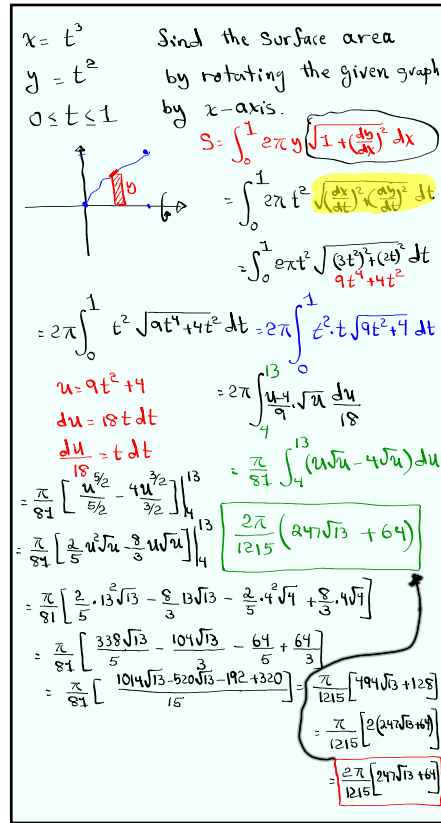 x = t³ find the surface area
y = t² by rotating the given graph
0 ≤ t ≤ 1 by x-axis.
S = ∫₀¹ 2π y √(1 + (dy/dx)²) dx
y
= ∫₀¹ 2π t² √((dx/dt)² + (dy/dt)²) dt
= ∫₀¹ 2πt² √((3t²)² + (2t)²) dt
9t⁴ + 4t²
= 2π ∫₀¹ t² √(9t⁴ + 4t²) dt = 2π ∫₀¹ t² · t √(9t² + 4) dt
u = 9t² + 4
du = 18 t dt
du/18 = t dt
= 2π ∫₄¹³ (u-4)/9 · √u du/18
= π/81 ∫₄¹³ (u√u - 4√u) du
= π/81 [ u^(5/2)/(5/2) - 4u^(3/2)/(3/2) ] |₄¹³
= π/81 [ 2/5 u²√u - 8/3 u√u ] |₄¹³
2π/1215 (247√13 + 64)
= π/81 [ 2/5 · 13²√13 - 8/3 13√13 - 2/5 · 4²√4 + 8/3 · 4√4 ]
= π/81 [ 338√13/5 - 104√13/3 - 64/5 + 64/3 ]
= π/81 [ (1014√13 - 520√13 - 192 + 320)/15 ] = π/1215 [494√13 + 128]
= π/1215 [2(247√13 + 64)]
= 2π/1215 [247√13 + 64]